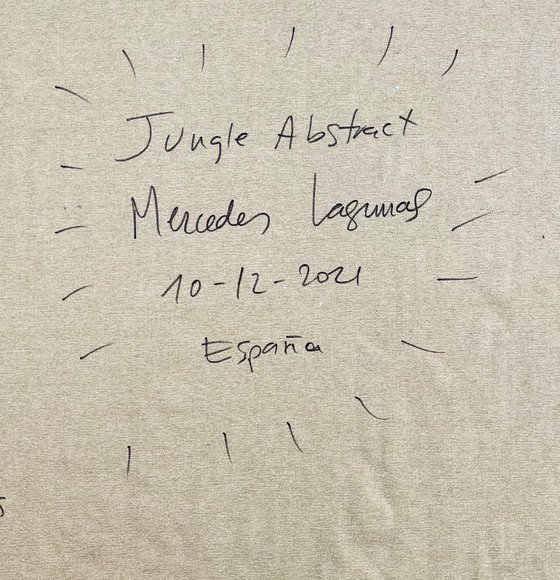 Jungle Abstract
Mercedes Lagunas
10-12-2021
España